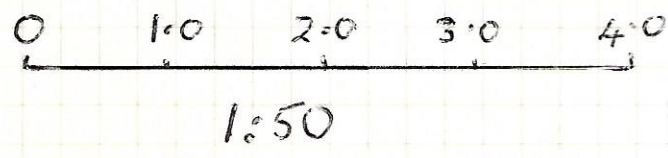 0 1·0 2·0 3·0 4·0
1:50